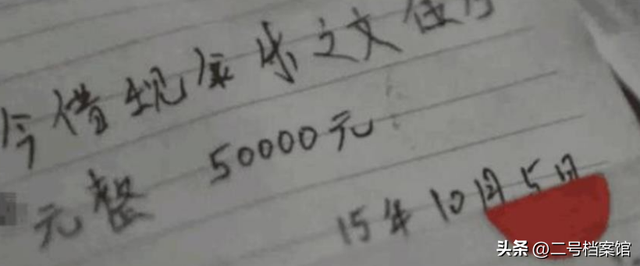 今借现金朱之文
元整 50000元
15年10月5日
头条 @二号档案馆